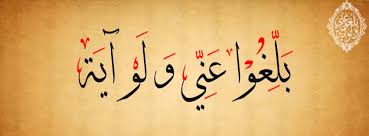 بَلِّغُوا عَنِّي وَلَو آيَة